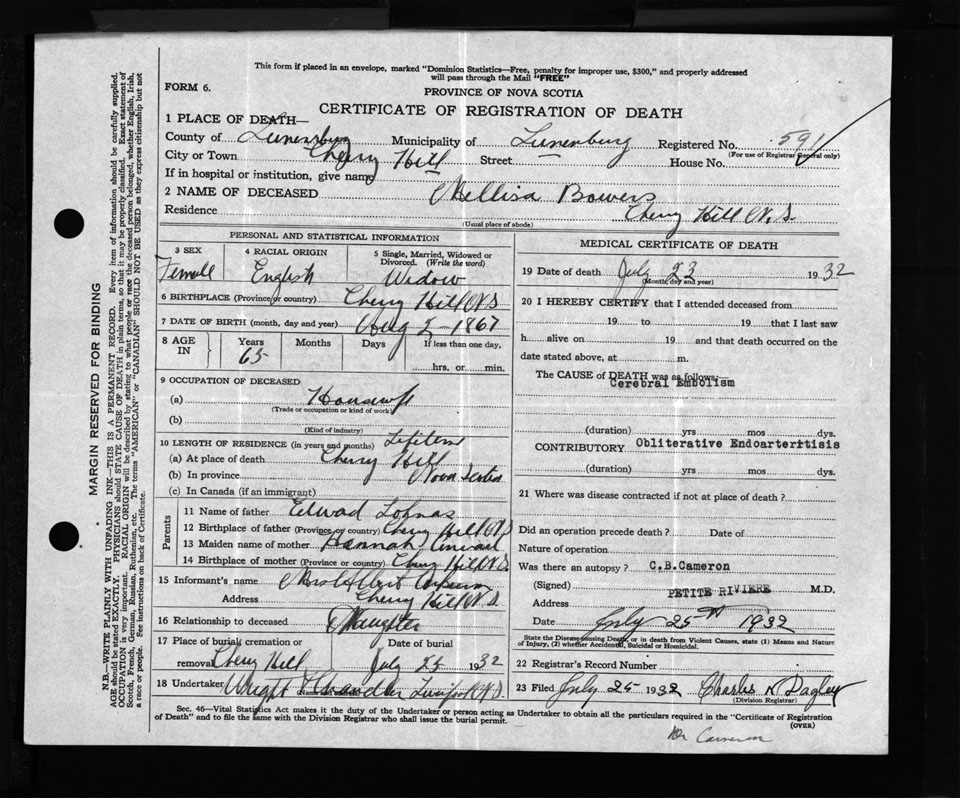 This form if placed in an envelope, marked "Dominion Statistics—Free, penalty for improper use, $300," and properly addressed
will pass through the Mail "FREE"
FORM 6.
PROVINCE OF NOVA SCOTIA
CERTIFICATE OF REGISTRATION OF DEATH
1 PLACE OF DEATH—
County of Lunenburg Municipality of Lunenburg Registered No. 59
(For use of Registrar General only)
City or Town Cherry Hill Street House No.
If in hospital or institution, give name
2 NAME OF DECEASED Mellisa Bowers
Residence Cherry Hill N.S.
(Usual place of abode)
PERSONAL AND STATISTICAL INFORMATION
3 SEX
Femele
4 RACIAL ORIGIN
English
5 Single, Married, Widowed or
Divorced. (Write the word)
Widow
6 BIRTHPLACE (Province or country) Cherry Hill N.S
7 DATE OF BIRTH (month, day and year) Aug 2 - 1867
8 AGE IN
Years Months Days If less than one day,
65
hrs. or min.
9 OCCUPATION OF DECEASED
(a) Housewife
(Trade or occupation or kind of work)
(b)
(Kind of industry)
10 LENGTH OF RESIDENCE (in years and months) Lifetime
(a) At place of death Cherry Hill
(b) In province Nova Scotia
(c) In Canada (if an immigrant)
Parents
11 Name of father Edward
12 Birthplace of father (Province or country) Cherry Hill N.S
13 Maiden name of mother Hannah
14 Birthplace of mother (Province or country) Cherry Hill N.S.
15 Informant's name Mrs Albert
Address Cherry Hill N.S
16 Relationship to deceased Daughter
17 Place of burial, cremation or Date of burial
removal Cherry Hill July 25 1932
18 Undertaker Wright Chandler N.S.
MEDICAL CERTIFICATE OF DEATH
19 Date of death July 23 1932
(Month, day and year)
20 I HEREBY CERTIFY that I attended deceased from
19 to 19 that I last saw
h alive on 19 and that death occurred on the
date stated above, at m.
The CAUSE of DEATH was as follows:—
Cerebral Embolism
(duration) yrs mos dys.
CONTRIBUTORY Obliterative Endoarteritisis
(duration) yrs mos dys.
21 Where was disease contracted if not at place of death ?
Did an operation precede death ? Date of
Nature of operation
Was there an autopsy ? C.B.Cameron
(Signed) PETITE RIVIERE M.D.
Address
Date July 25th 1932
State the Disease causing Death, or in death from Violent Causes, state (1) Means and Nature
of Injury, (2) whether Accidental, Suicidal or Homicidal.
22 Registrar's Record Number
23 Filed July 25 1932 Charles N Dagley
(Division Registrar)
Sec. 46—Vital Statistics Act makes it the duty of the Undertaker or person acting as Undertaker to obtain all the particulars required in the "Certificate of Registration
of Death" and to file the same with the Division Registrar who shall issue the burial permit.
(OVER)
Dr Cameron
MARGIN RESERVED FOR BINDING
N.B.—WRITE PLAINLY WITH UNFADING INK—THIS IS A PERMANENT RECORD. Every item of information should be carefully supplied.
AGE should be stated EXACTLY. PHYSICIANS should STATE CAUSE OF DEATH in plain terms, so that it may be properly classified. Exact statement of
OCCUPATION is very important. RACIAL ORIGIN will be described by stating to what people or race the deceased person belonged, whether English, Irish,
Scotch, French, German, Russian, Ruthenian, etc. The terms "AMERICAN" or "CANADIAN" SHOULD NOT BE USED as they express citizenship but not
a race or people. See instructions on back of Certificate.